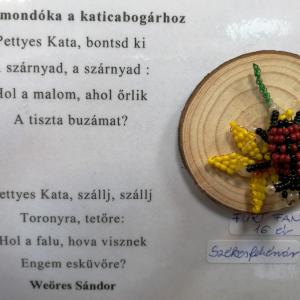 mondóka a katicabogárhoz
Pettyes Kata, bontsd ki
szárnyad, a szárnyad :
Hol a malom, ahol őrlik
A tiszta buzámat?
ettyes Kata, szállj, szállj
Toronyra, tetőre:
Hol a falu, hova visznek
Engem esküvőre?
Weöres Sándor
FÜRJ FAN
16 év
Székesfehérvár